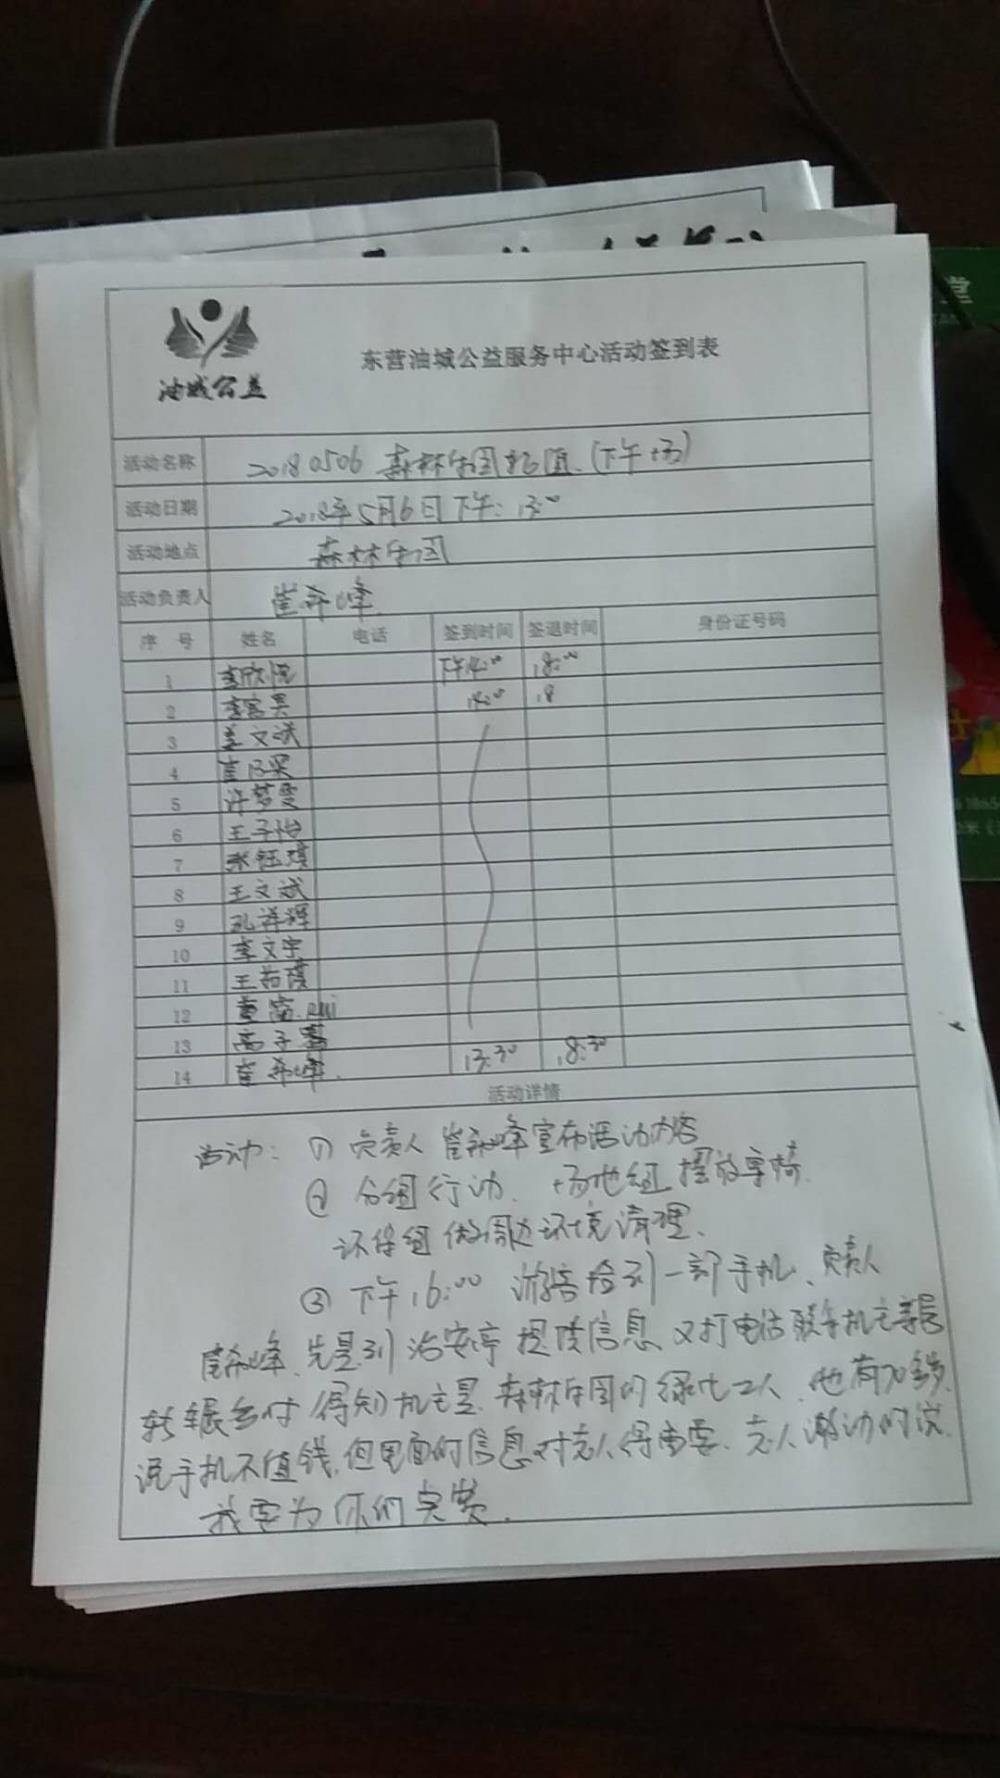 油城公益
东营油城公益服务中心活动签到表
活动名称 20180506 森林乐园执值（下午场）
活动日期 2018年5月6日下午：13:00
活动地点 森林乐园
活动负责人 崔希峰
序号 姓名 电话 签到时间 签退时间 身份证号码
1 李欣悦 下午14:00 18:00
2 李富昊 14:00 18
3 姜文
4
5 许梦雯
6 王子怡
7 张钰琪
8 王文斌
9 孔祥辉
10 李文宇
11 王
12 董
13 高子
14 崔希峰 13:30 18:30
活动详情
活动：① 负责人崔希峰宣布活动内容
② 分组行动、场地组摆放桌椅
环保组做周边环境清理、
③ 下午16:00 游客拾到一部手机、负责人
崔希峰、先是到治安亭提供信息、又打电话联系手机主
转辗多时 得知机主是 森林乐园的绿化工人、他有70多岁、
说手机不值钱、但里面的信息对老人很重要、老人激动的说、
我要为你们点赞、